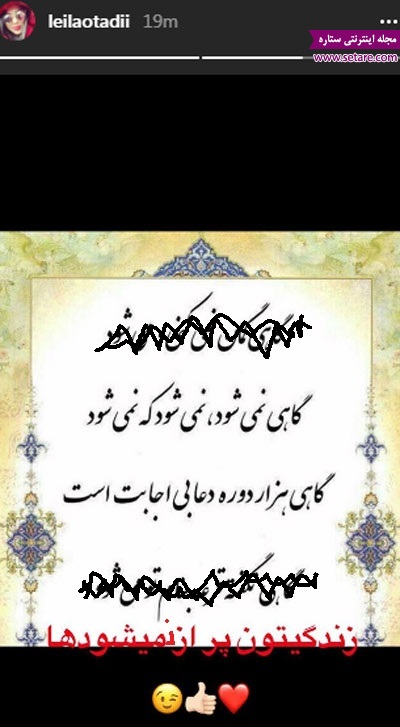 leilaotadii 19m
مجله اینترنتی ستاره
www.setare.com
گاهی نمی شود، نمی شود که نمی شود
گاهی هزار دوره دعا بی اجابت است
زندگیتون پر ازنمیشودها